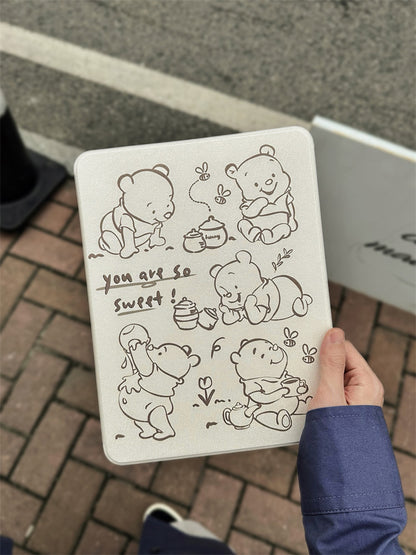 honey
you are so
sweet!